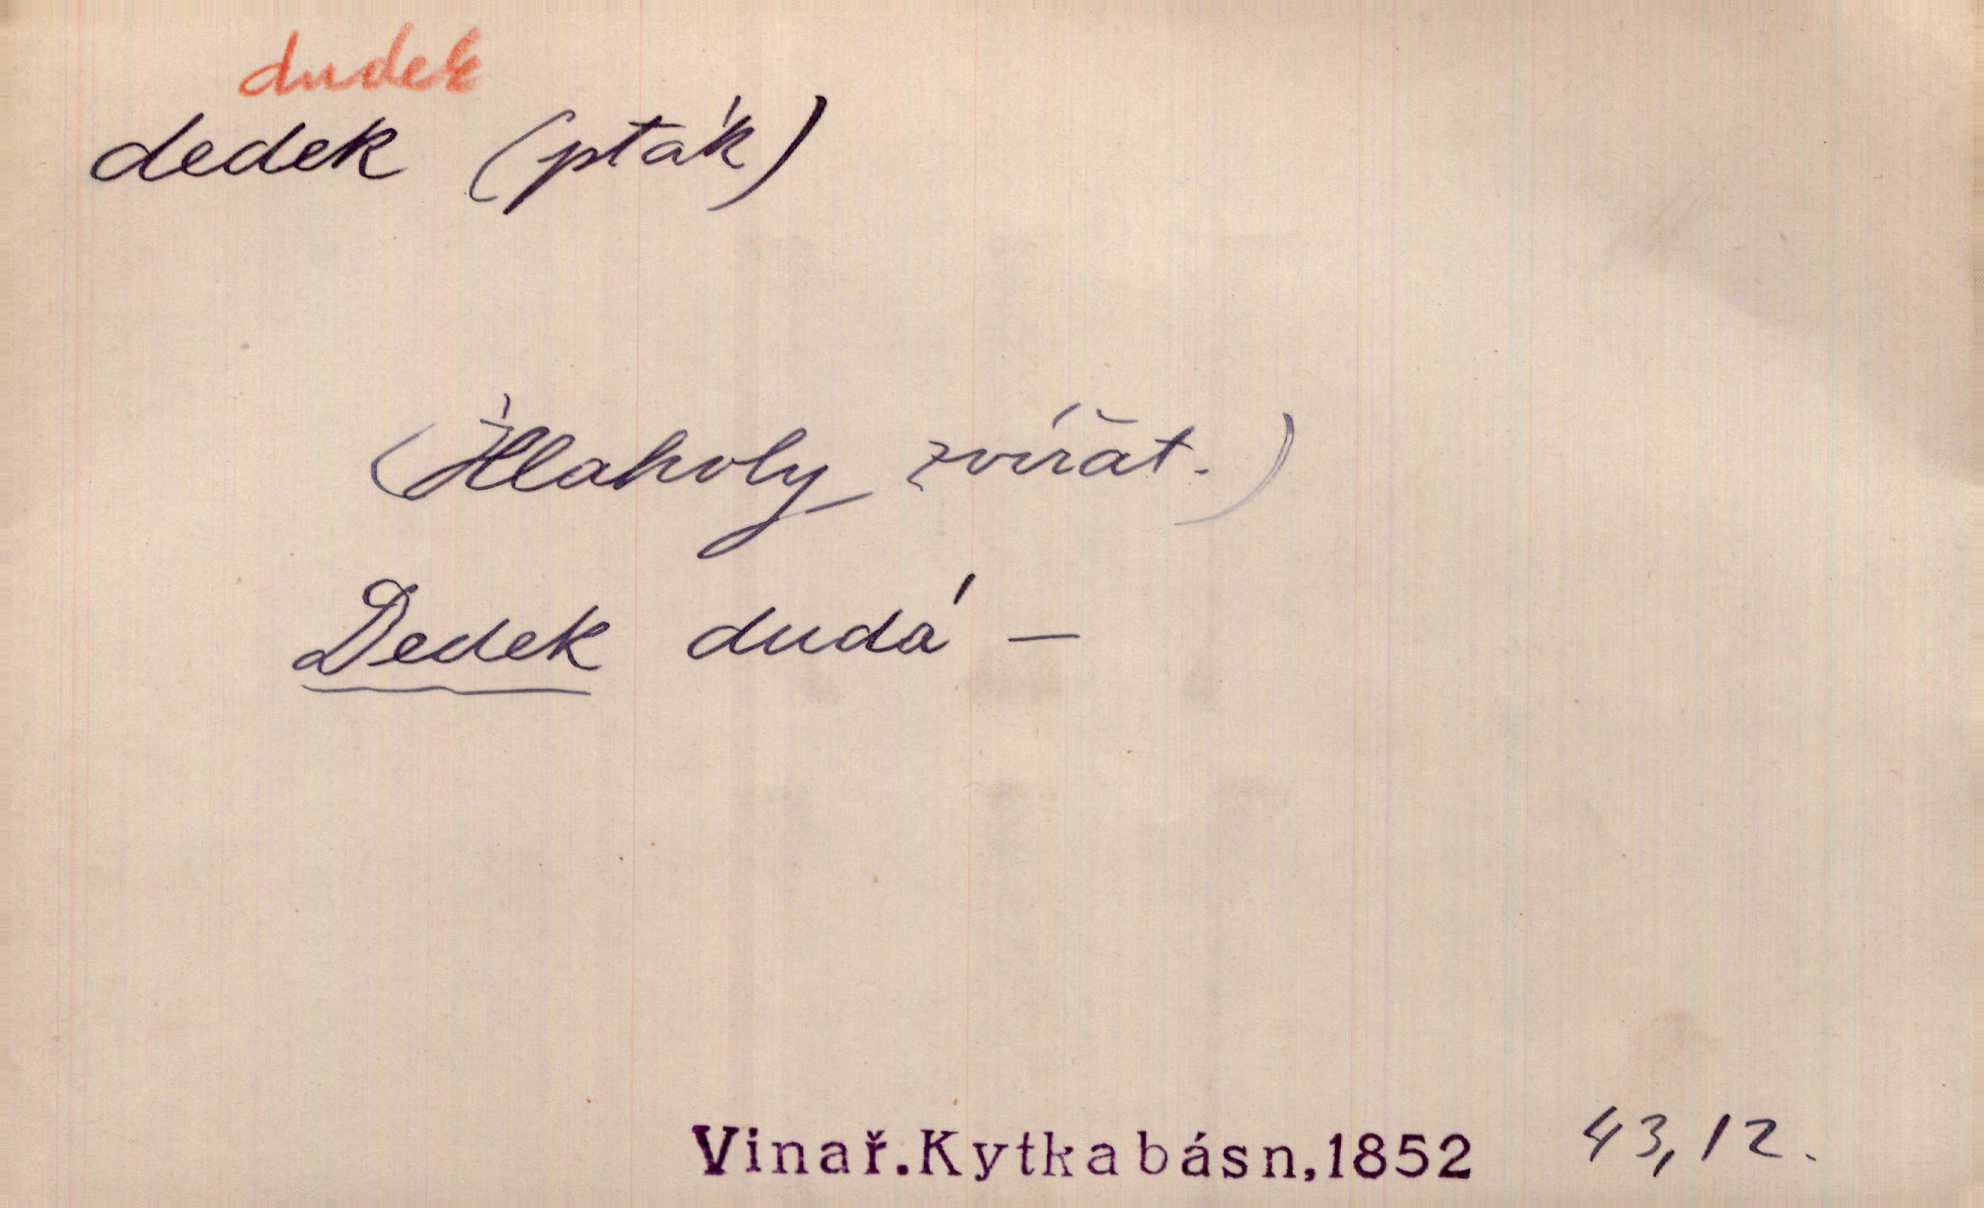 dudek
dedek (pták)
(Hlaholy zvířat.)
Dedek dudá —
Vinař. Kytka básn, 1852 43, 12.